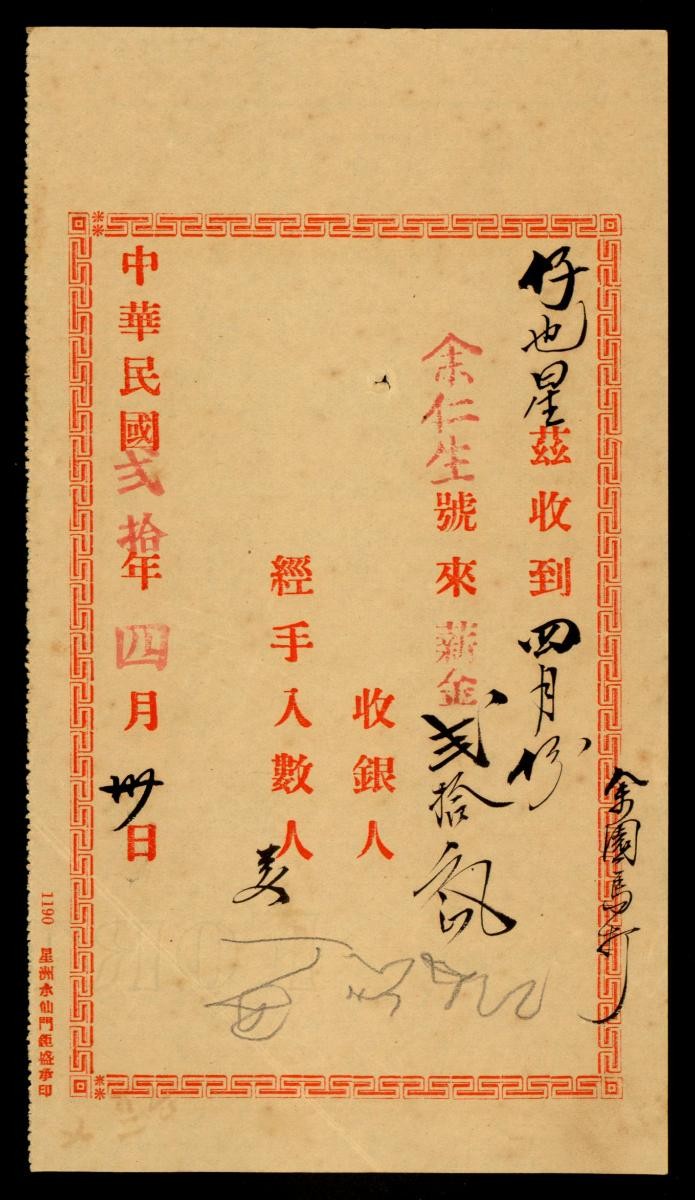 余園馬打
仔也星茲收到四月份
余仁生號來薪金弍拾元
收銀人
經手入數人
中華民國弍拾年四月卅日
1190 星洲水仙門鉅盛承印